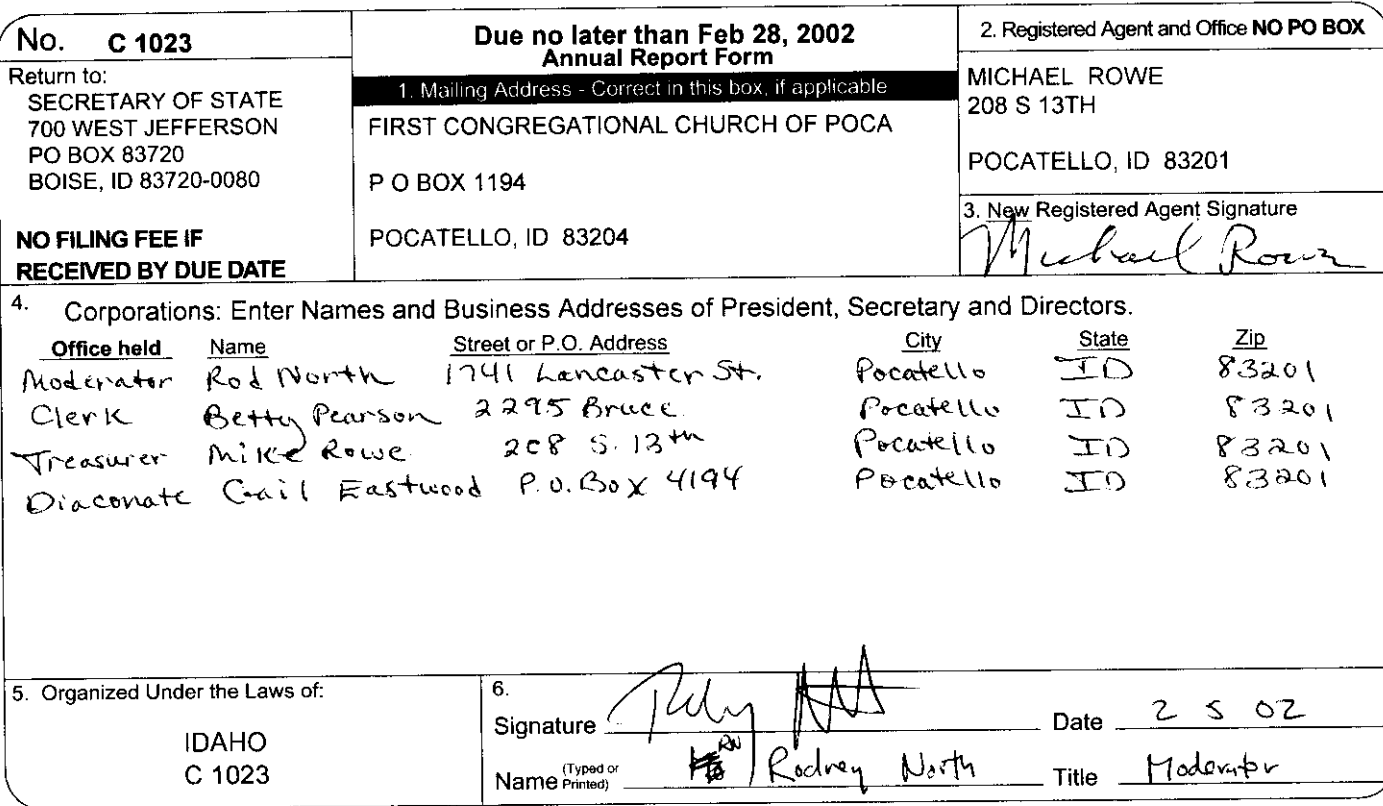 No. C 1023
Return to:
SECRETARY OF STATE
700 WEST JEFFERSON
PO BOX 83720
BOISE, ID 83720-0080
NO FILING FEE IF
RECEIVED BY DUE DATE
Due no later than Feb 28, 2002
Annual Report Form
1. Mailing Address - Correct in this box, if applicable
FIRST CONGREGATIONAL CHURCH OF POCA
P O BOX 1194
POCATELLO, ID 83204
2. Registered Agent and Office NO PO BOX
MICHAEL ROWE
208 S 13TH
POCATELLO, ID 83201
3. New Registered Agent Signature
Michael Rowe
4. Corporations: Enter Names and Business Addresses of President, Secretary and Directors.
Office held Name Street or P.O. Address City State Zip
Moderator Rod North 1741 Lancaster St. Pocatello ID 83201
Clerk Betty Pearson 2295 Bruce Pocatello ID 83201
Treasurer Mike Rowe 208 S. 13th Pocatello ID 83201
Diaconate Gail Eastwood P.O. Box 4194 Pocatello ID 83201
5. Organized Under the Laws of:
IDAHO
C 1023
6.
Signature
Date 2 5 02
Name (Typed or Printed) RN Rodney North Title Moderator